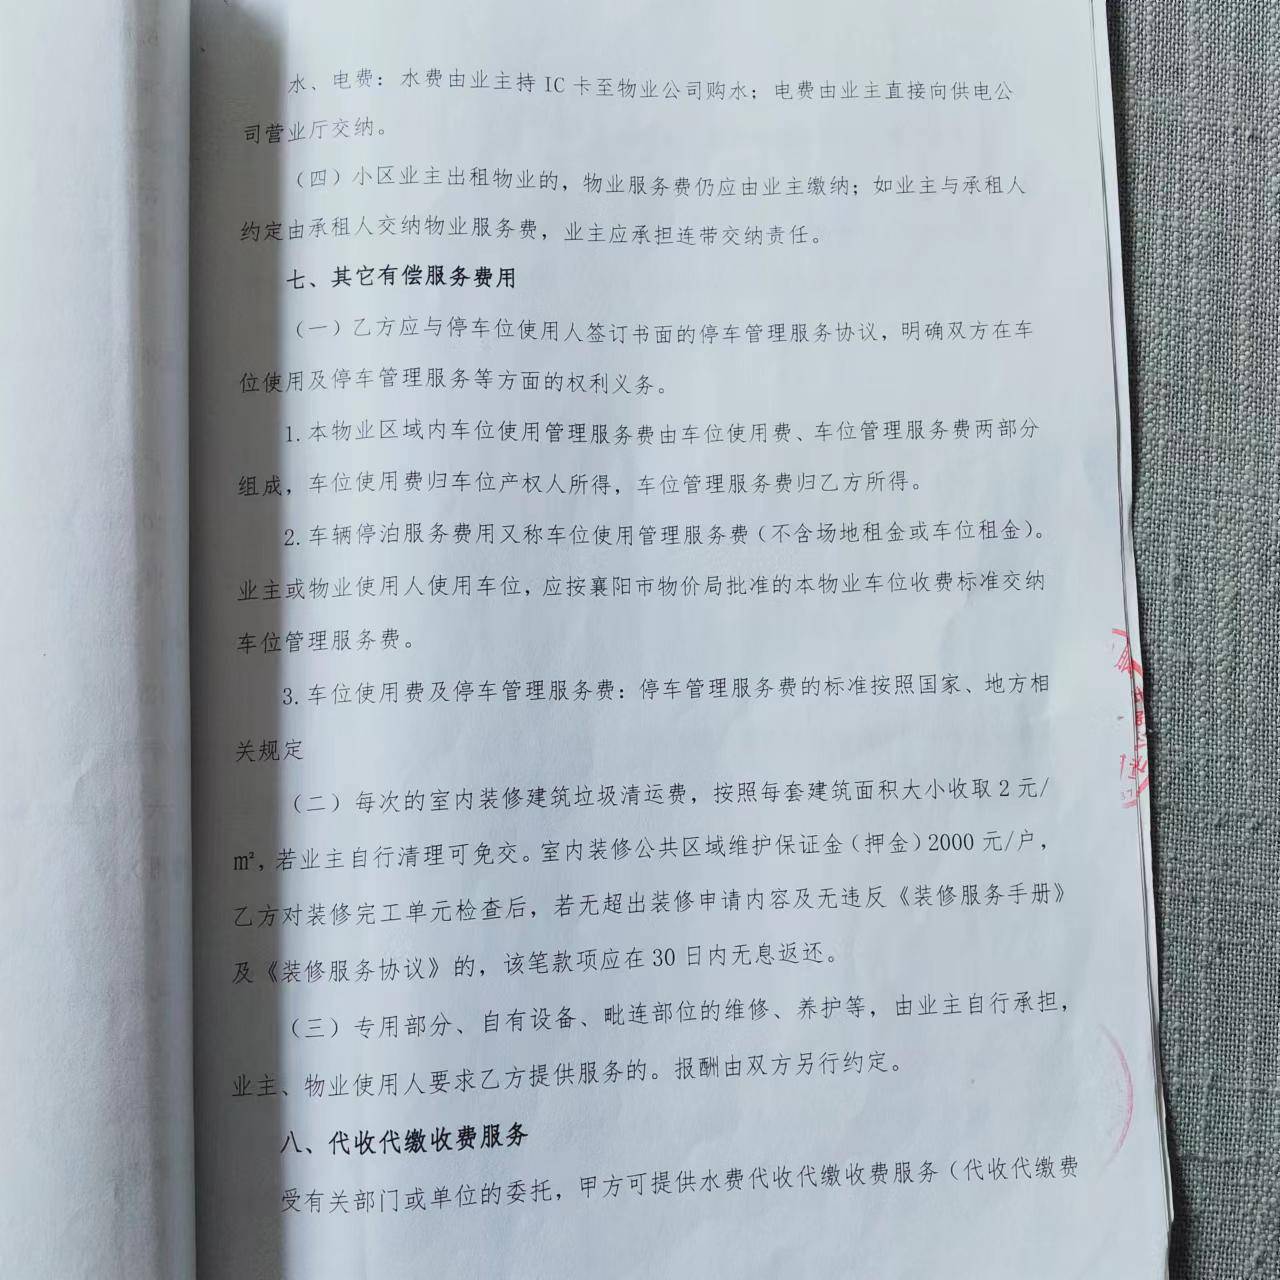 水、电费：水费由业主持 IC 卡至物业公司购水；电费由业主直接向供电公
司营业厅交纳。
（四）小区业主出租物业的，物业服务费仍应由业主缴纳；如业主与承租人
约定由承租人交纳物业服务费，业主应承担连带交纳责任。
七、其它有偿服务费用
（一）乙方应与停车位使用人签订书面的停车管理服务协议，明确双方在车
位使用及停车管理服务等方面的权利义务。
1.本物业区域内车位使用管理服务费由车位使用费、车位管理服务费两部分
组成，车位使用费归车位产权人所得，车位管理服务费归乙方所得。
2.车辆停泊服务费用又称车位使用管理服务费（不含场地租金或车位租金）。
业主或物业使用人使用车位，应按襄阳市物价局批准的本物业车位收费标准交纳
车位管理服务费。
3.车位使用费及停车管理服务费：停车管理服务费的标准按照国家、地方相
关规定
（二）每次的室内装修建筑垃圾清运费，按照每套建筑面积大小收取 2 元/
㎡，若业主自行清理可免交。室内装修公共区域维护保证金（押金）2000 元/户，
乙方对装修完工单元检查后，若无超出装修申请内容及无违反《装修服务手册》
及《装修服务协议》的，该笔款项应在 30 日内无息返还。
（三）专用部分、自有设备、毗连部位的维修、养护等，由业主自行承担，
业主、物业使用人要求乙方提供服务的。报酬由双方另行约定。
八、代收代缴收费服务
受有关部门或单位的委托，甲方可提供水费代收代缴收费服务（代收代缴费